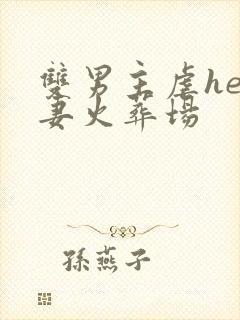 雙男主虐he
妻火葬場
孫燕子